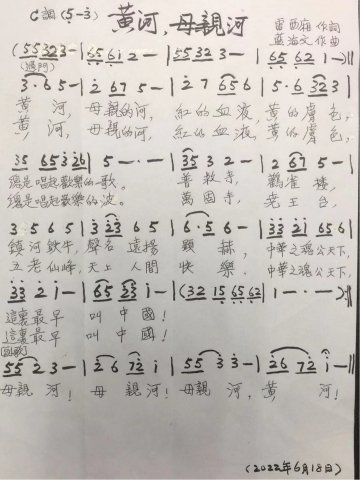 C調 (5-3) 黃河，母親河 雷西廂 作詞
浩文 作曲
(5532 3-|65 61 2-|55 32 3-|65 62 1-)
(過門)
3·6 5-|2 67 5-|2 7 65 6|5·6 32 3|
黃 河，母親的河，紅的血液，黃的膚色，
黃 河，母親的河，紅的血液，黃的膚色，
35 65 3 26|5-·-|35 3 2-|2 67 5-|
總是唱起歡樂的歌。 普救寺， 鸛雀樓，
總是唱起歡樂的波。 萬固寺， 堯王台，
3 5 6 5|3 23 6 5|6·5 6-|33 21 65 6|
鎮河鐵牛，聲名遠揚 顯 赫，中華之魂公天下，
五老仙峰，天上人間 快 樂。中華之魂公天下，
33 2 1-|65 23 1-|(32 15 65 62|1-·-)|
這裏最早 叫中國！
這裏最早 叫中國！
55 2 3-|2 6 72 1|55 3 3-|26 72 1-||
母親河！母 親河！母親河，黃 河！
(2022年6月18日)